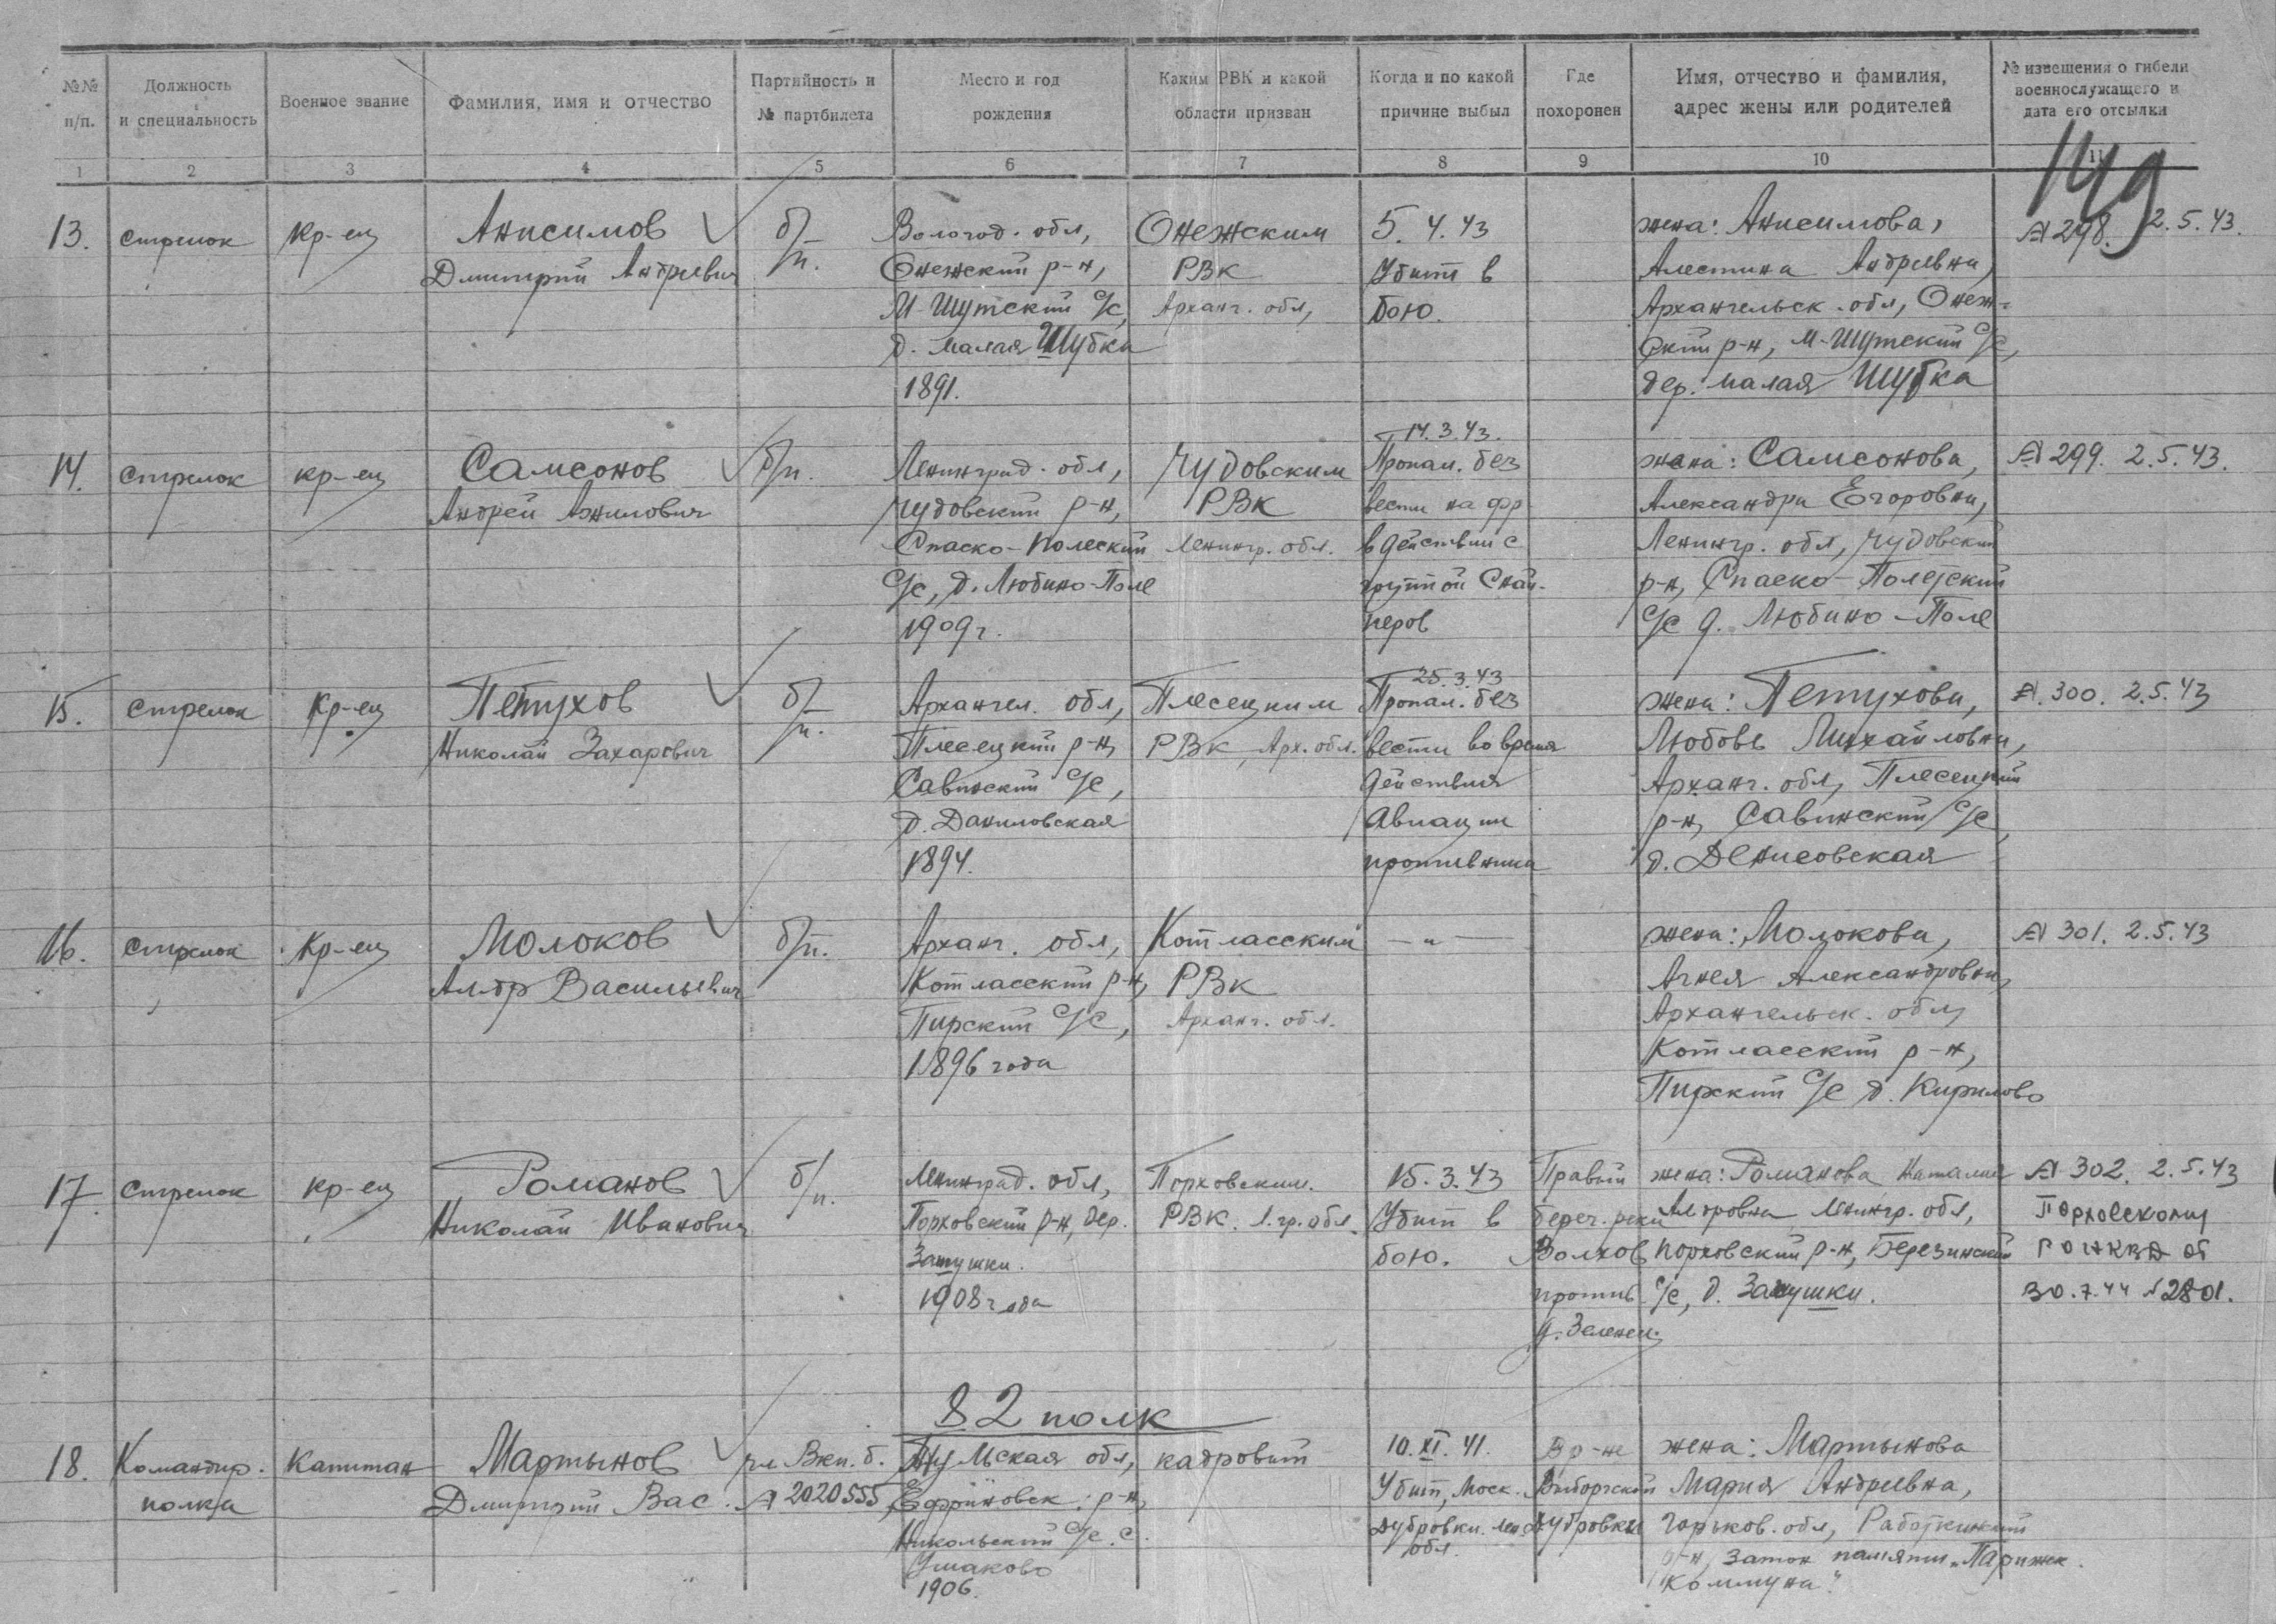 №№ п/п.
Должность и специальность
Военное звание
Фамилия, имя и отчество
Партийность и № партбилета
Место и год рождения
Каким РВК и какой области призван
Когда и по какой причине выбыл
Где похоронен
Имя, отчество и фамилия, адрес жены или родителей
№ извещения о гибели военнослужащего и дата его отсылки
1 2 3 4 5 6 7 8 9 10 11
149
13. стрелок кр-ец Анисимов б/п. Вологод. обл, Онежским 5.4.43 жена: Анисимова, № 298. 2.5.43.
Дмитрий Андреевич Онежский р-н, РВК Убит в Алестина Андреевна,
М-Шутский с/с, Арханг. обл, бою. Архангельск. обл, Онеж-
д. малая Шубка ский р-н, М-Шутский с/с,
1891. дер. малая Шубка
14.3.43.
14. стрелок кр-ец Самсонов б/п. Ленинград. обл, Чудовским Пропал. без жена: Самсонова, № 299. 2.5.43.
Андрей Чудовский р-н, РВК вести на фр Александра Егоровна,
Спаско-Полеский Ленингр. обл. в действии с Ленингр. обл, Чудовский
с/с, д. Любино-Поле группой Снай- р-н, Спаско-Полетский
1909г. перов с/с д. Любино-Поле
25.3.43
15. стрелок кр-ец Петухов б/п. Архангел. обл, Плесецким Пропал. без жена: Петухова, № 300. 2.5.43
Николай Захарович Плесецкий р-н, РВК, Арх. обл. вести во время Любовь Михайловна,
Савинский с/с, действия Арханг. обл, Плесецкий
д. Даниловская Авиации р-н, Савинский с/с,
1894. противника д. Денисовская
16. стрелок кр-ец Молоков б/п. Арханг. обл, Котласским —"— жена: Молокова, № 301. 2.5.43
Ал-др Васильевич Котласский р-н, РВК Агнея Александровна,
Пирский с/с, Арханг. обл. Архангельск. обл,
1896 года Котласский р-н,
Пирский с/с д. Кирилово
17. стрелок кр-ец Романов б/п. Ленинград. обл, Порховским. 15.3.43 Правый жена: Романова Наталия № 302. 2.5.43
Николай Иванович Порховский р-н, дер. РВК. Л.гр. обл. Убит в берег. реки Ленингр. обл, Порховскому
Затушки. бою. Волхов порховский р-н, Березинский РОНКВД от
1908 года против с/с, д. Затушки. 30.7.44 №2801.
д. Зеленец.
82 полк
18. Командир. Капитан Мартынов чл Вкп. б. Тульская обл, кадровый 10.XI.41. В р-не жена: Мартынова
полка Дмитрий Вас. № 2020555 р-н, Убит, Моск. Выборгской Мария Андреевна,
Никольский с/с. с. Дубровки. Лен Дубровки Горьков. обл, Работкинский
Ушаково обл. р-н, Затон памяти „Парижск.
1906. Коммуна"